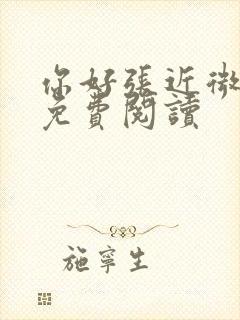 你好張近微
免費閱讀
施寧生